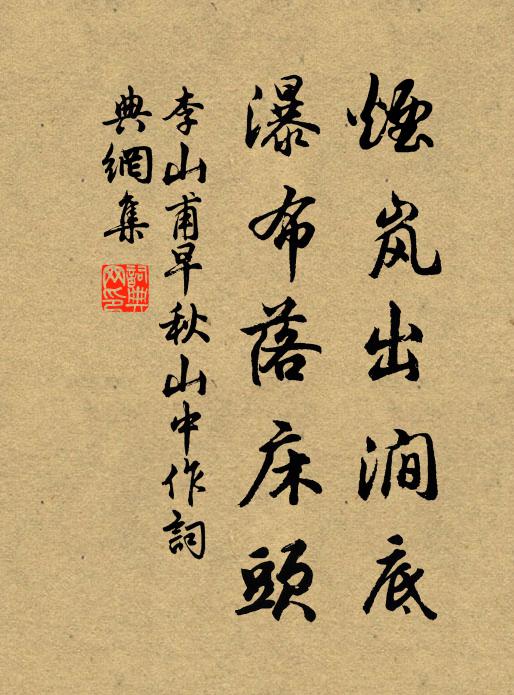 煙岚出澗底
瀑布落床頭
李山甫早秋山中作詞
典網集
詞典網印